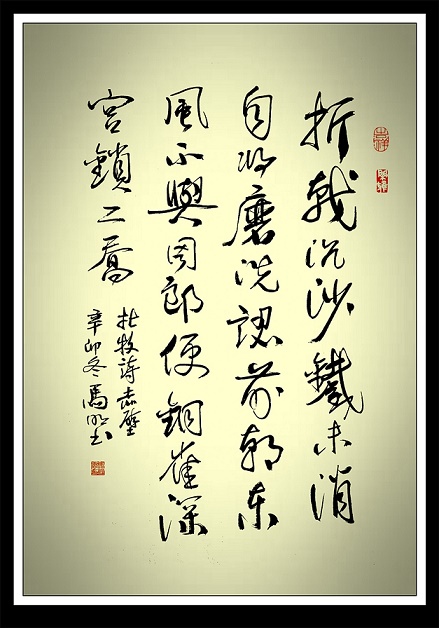 吉祥
折戟沉沙鐵未消
自將磨洗認前朝東
風不與周郎便銅雀深
宮鎖二喬
杜牧詩赤壁
辛卯冬馬明书